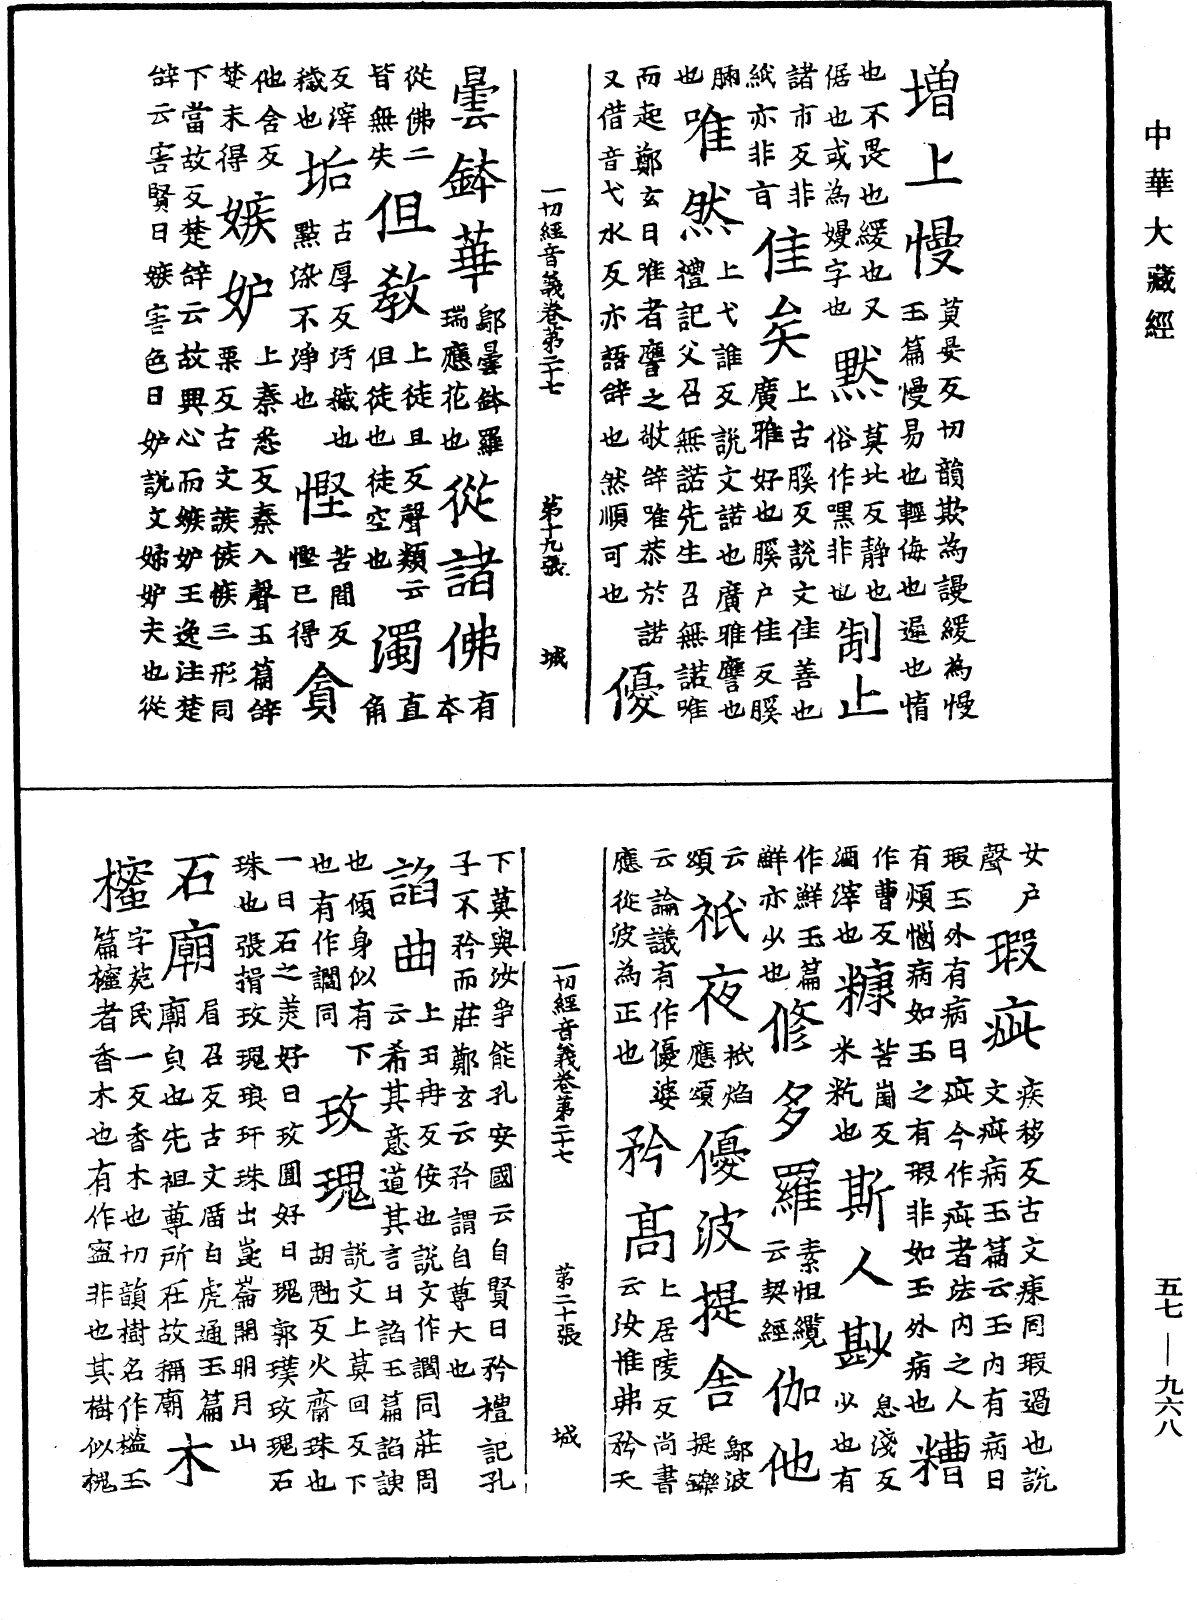 中華大藏經
增上慢 莫晏反切韻欺為謾緩為慢
玉篇慢易也輕侮也遲也惰
也不畏也緩也又
倨也或為嫚字也 默 莫北反静也
俗作嘿非也 制止
諸市反非
紙亦非 佳矣 上古膎反説文佳善也
廣雅好也膎户佳反膎
脯
也 唯然 上弋誰反説文諾也廣雅譍也
禮記父召無諾先生召無諾唯
而起鄭玄曰唯者譍之敬辝唯恭於諾
又借音弋水反亦語辝也然順可也 優
一切經音義卷第二十七 第十九張 城
曇鉢華 鄔曇鉢羅
瑞應花也 從諸佛 有
本
從佛二
皆無失 但教 上徒旦反聲類云
但徒也徒空也 濁 直
角
反滓
穢也 垢 古厚反污穢也
點染不淨也 慳 苦間反
慳已得 貪
他含反
婪未得 嫉妒 上秦悉反秦入聲玉篇辝
栗反古文 三形同
下當故反楚辝云故興心而嫉妒王逸注楚
辝云害賢曰嫉害色曰妒説文婦妒夫也從
女户
聲 瑕疵 疾移反古文㾊同瑕過也説
文疵病玉篇云玉内有病曰
瑕玉外有病曰疵今作疵者法内之人
有煩惱病如玉之有瑕非如玉外病也 糟
作曹反
酒滓也 糠 苦崗反
米䊉也 斯人尠 息淺反
少也有
作鮮玉篇
鮮亦少也 修多羅 素怛纜
云契經 伽他
云
頌 祇夜 祇焰
應頌 優波提舍 鄔波
提鑠
云論議有作優婆
應從波為正也 矜高 上居陵反尚書
云汝惟弗矜天
一切經音義卷第二十七 第二十張 城
下莫與汝爭能孔安國云自賢曰矜禮記孔
子不矜而莊鄭玄云矜謂自尊大也
諂曲 上丑冉反佞也説文作讇同莊周
云希其意道其言曰諂玉篇諂諛
也傾身似有下
也有作讇同 玫瑰 説文上莫回反下
胡魁反火齊珠也
一曰石之美好曰玫圓好曰瑰郭璞玫瑰石
珠也張揖玫瑰琅玕珠出崑崙開明月山
石廟 眉召反古文庿白虎通玉篇
廟皃也先祖尊所在故稱廟 木
櫁 字苑民一反香木也切韻樹名作樒玉
篇櫁者香木也有作 非也其樹似槐
五七—九六八